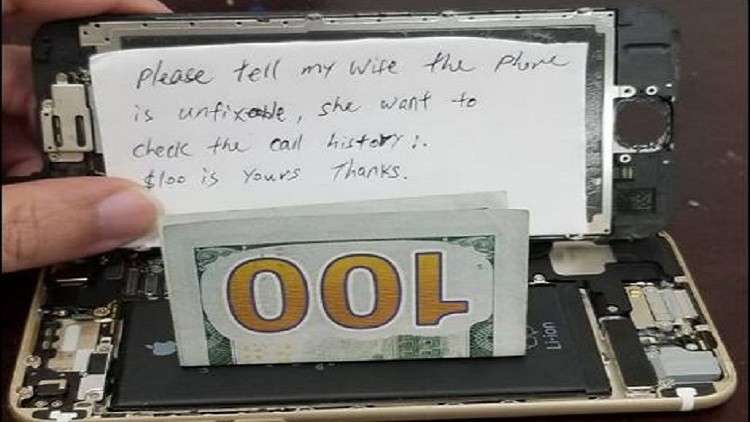 Please tell my wife the phone
is unfixable, she want to
check the call history:.
$100 is yours Thanks.
100
Li-ion